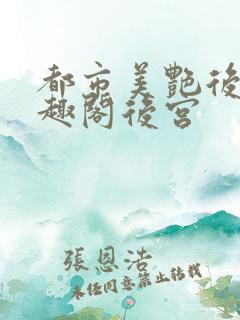 都市美艷後
趣閣後宮
張恩浩
未经同意禁止转载